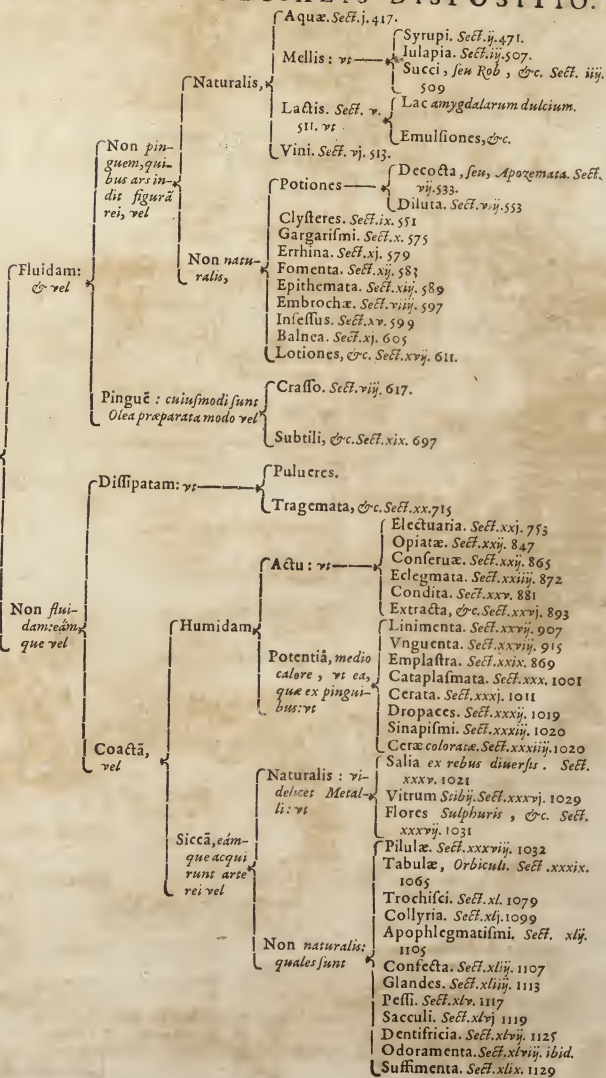 DISPOSITIO.
Aquæ. Sect. j. 417.
Mellis: vt
Syrupi. Sect. ij. 471.
Iulapia. Sect. iij. 507.
Succi, seu Rob, &c. Sect. iiij.
509
Naturalis,
Lactis. Sect. v.
511. vt
Lac amygdalarum dulcium.
Emulsiones, &c.
Vini. Sect. vj. 513.
Non pin-
guem, qui-
bus ars in-
dit figurã
rei, vel
Potiones
Decocta, seu, Apozemata. Sect.
vij. 533.
Diluta. Sect. viij. 553
Non natu-
ralis,
Clysteres. Sect. ix. 551
Gargarismi. Sect. x. 575
Errhina. Sect. xj. 579
Fomenta. Sect. xij. 583
Epithemata. Sect. xiij. 589
Embrochæ. Sect. viiij. 597
Insessus. Sect. xv. 599
Balnea. Sect. xj. 605
Lotiones, &c. Sect. xvij. 611.
Fluidam:
& vel
Pinguẽ: cuiusmodi sunt
Olea præparata modo vel
Crasso. Sect. viij. 617.
Subtili, &c. Sect. xix. 697
Dissipatam: vt
Pulueres.
Tragemata, &c. Sect. xx. 715
Non flui-
dam: eám
que vel
Humidam
Actu: vt
Electuaria. Sect. xxj. 753
Opiatæ. Sect. xxij. 847
Conseruæ. Sect. xxij. 865
Eclegmata. Sect. xxiiij. 872
Condita. Sect. xxv. 881
Extracta, &c. Sect. xxvj. 893
Potentiâ, medio
calore, vt ea,
quæ ex pingui-
bus: vt
Linimenta. Sect. xxvij. 907
Vnguenta. Sect. xxviij. 915
Emplastra. Sect. xxix. 869
Cataplasmata. Sect. xxx. 1001
Cerata. Sect. xxxj. 1011
Dropaces. Sect. xxxij. 1019
Sinapismi. Sect. xxxiij. 1020
Ceræ coloratæ. Sect. xxxiiij. 1020
Coactã,
vel
Siccã, eám-
que acqui
runt arte
rei vel
Naturalis: vi-
delicet Metal-
li: vt
Salia ex rebus diuersis. Sect.
xxxv. 1021
Vitrum Stibij. Sect. xxxvj. 1029
Flores Sulphuris, &c. Sect.
xxxvij. 1031
Non naturalis:
quales sunt
Pilulæ. Sect. xxxviij. 1032
Tabulæ, Orbiculi. Sect. xxxix.
1065
Trochisci. Sect. xl. 1079
Collyria. Sect. xlj. 1099
Apophlegmatismi. Sect. xlij.
1105
Confecta. Sect. xliij. 1107
Glandes. Sect. xliiij. 1113
Pessi. Sect. xlv. 1117
Sacculi. Sect. xlvj 1119
Dentifricia. Sect. xlvij. 1125
Odoramenta. Sect. xlviij. ibid.
Suffimenta. Sect. xlix. 1129